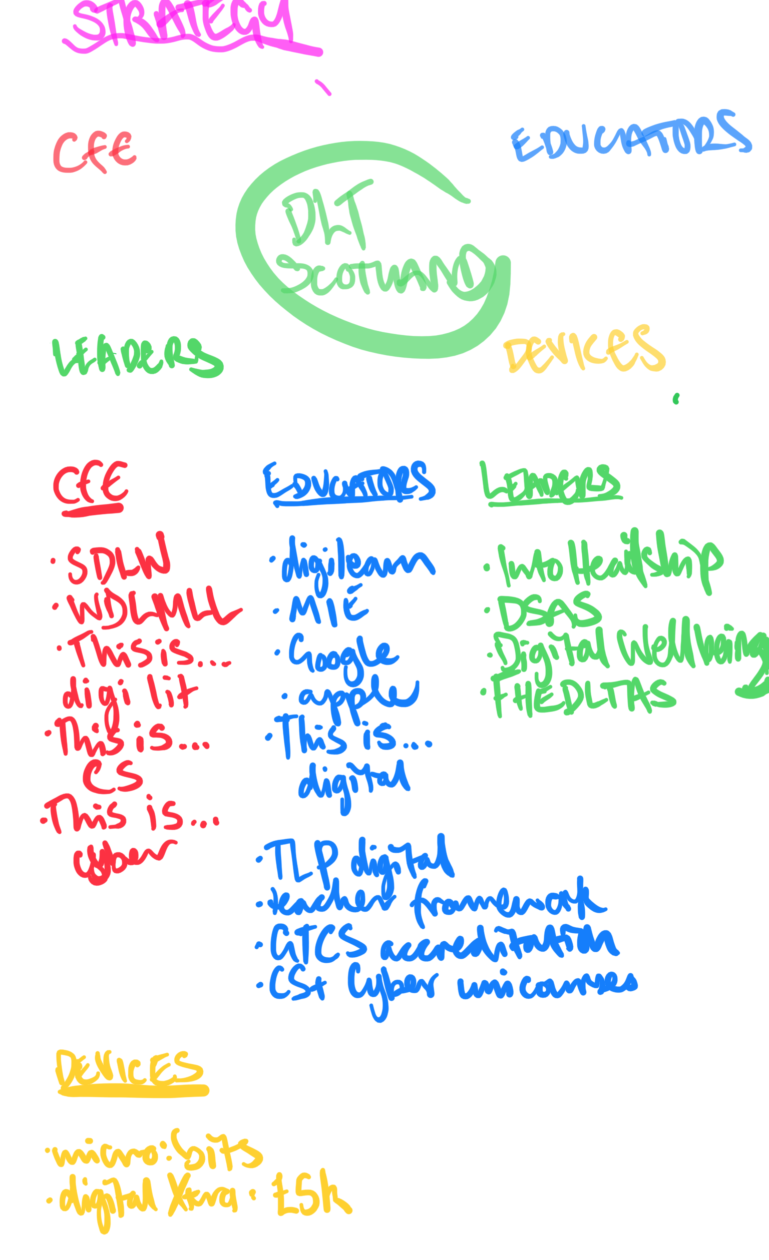 STRATEGY
CfE
EDUCATORS
DLT
SCOTLAND
LEADERS
DEVICES
CfE
· SDLW
· WDLMLL
· This is...
digi lit
· This is...
CS
· This is...
cyber
EDUCATORS
· digilearn
· MIE
· Google
· apple
· This is...
digital
· TLP digital
· teacher framework
· GTCS accreditation
· CS+ Cyber uni courses
LEADERS
· Into Headship
· DSAS
· Digital Wellbeing
· FHEDLTAS
DEVICES
· micro:bits
· digital Xtra · £5k